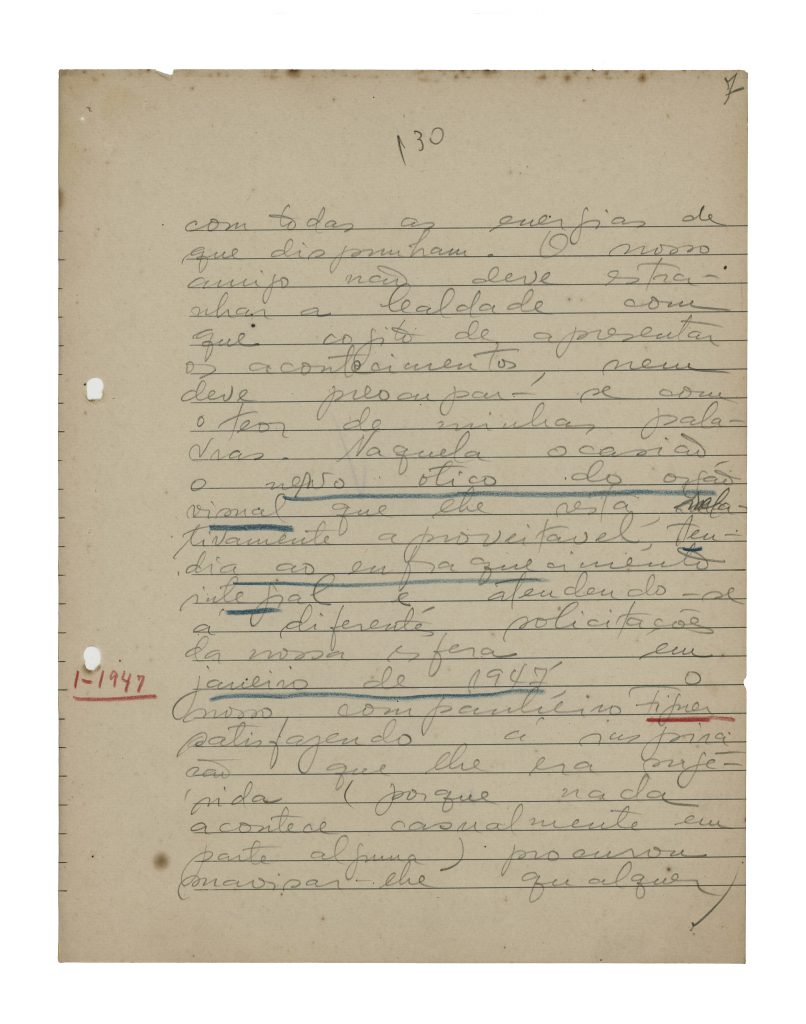 7
130
com todas as energias de
que dispunham. O nosso
amigo não deve estra-
nhar a lealdade com
que cogito de apresentar
os acontecimentos, nem
deve preocupar-se com
o teor de minhas pala-
vras. Naquela ocasião
o nervo otico do orgão
visual que lhe resta rela-
tivamente aproveitavel, ten-
dia ao enfraquecimento
integral e atendendo-se
á diferentes solicitações
da nossa esfera em
1-1947
janeiro de 1947 o
nosso companheiro Figner
satisfazendo á inspira
ção que lhe era sugé-
rida (porque nada
acontece casualmente em
parte alguma) procurou
suavisar-lhe qualquer